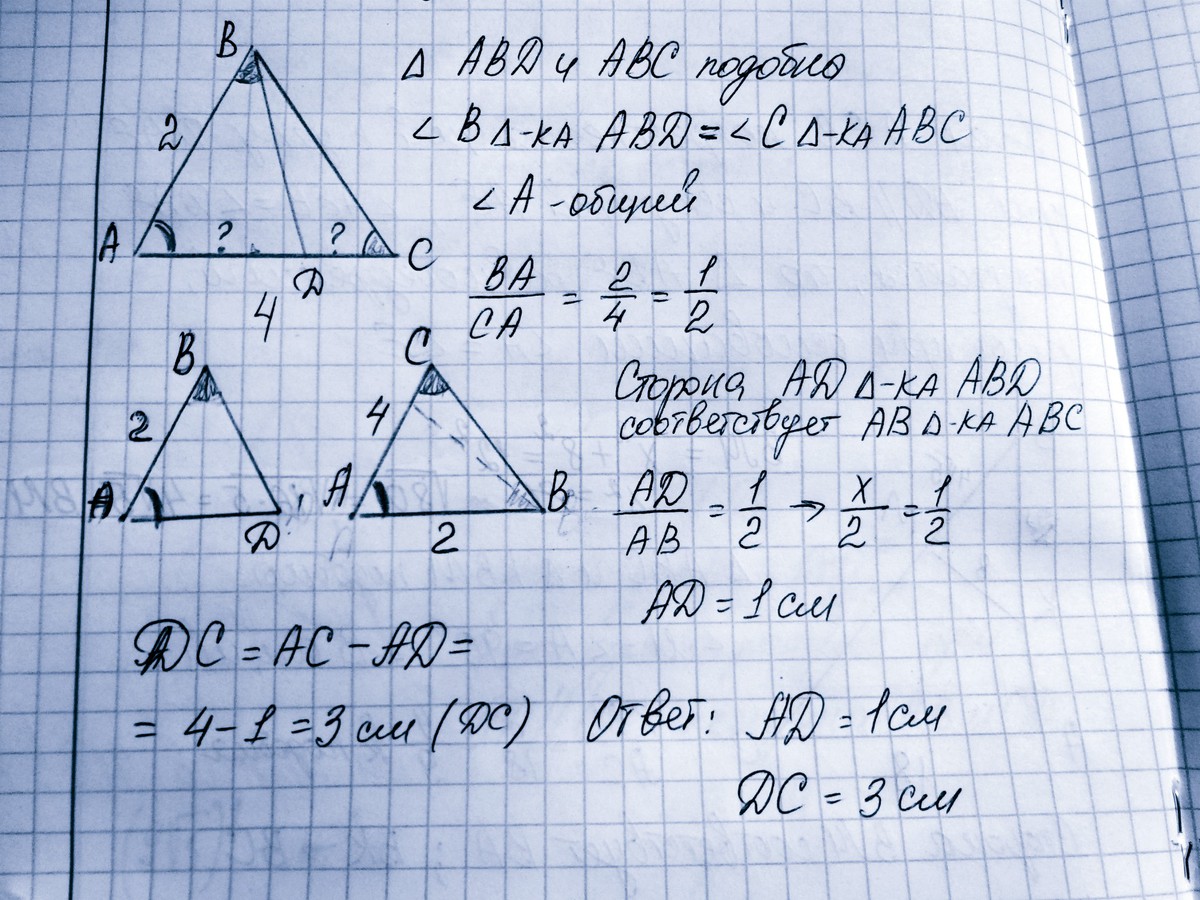 B
Δ ABD и ABC подобно
2
∠ B Δ-ка ABD = ∠ C Δ-ка ABC
∠ A - общий
A ? ? C
D
4
BA/CA = 2/4 = 1/2
B C
2 4
A D, A B
2
Сторона AD Δ-ка ABD
соответствует AB Δ-ка ABC
AD/AB = 1/2 → x/2 = 1/2
AD = 1 см
DC = AC - AD =
= 4 - 1 = 3 см (DC)
Ответ: AD = 1 см
DC = 3 см